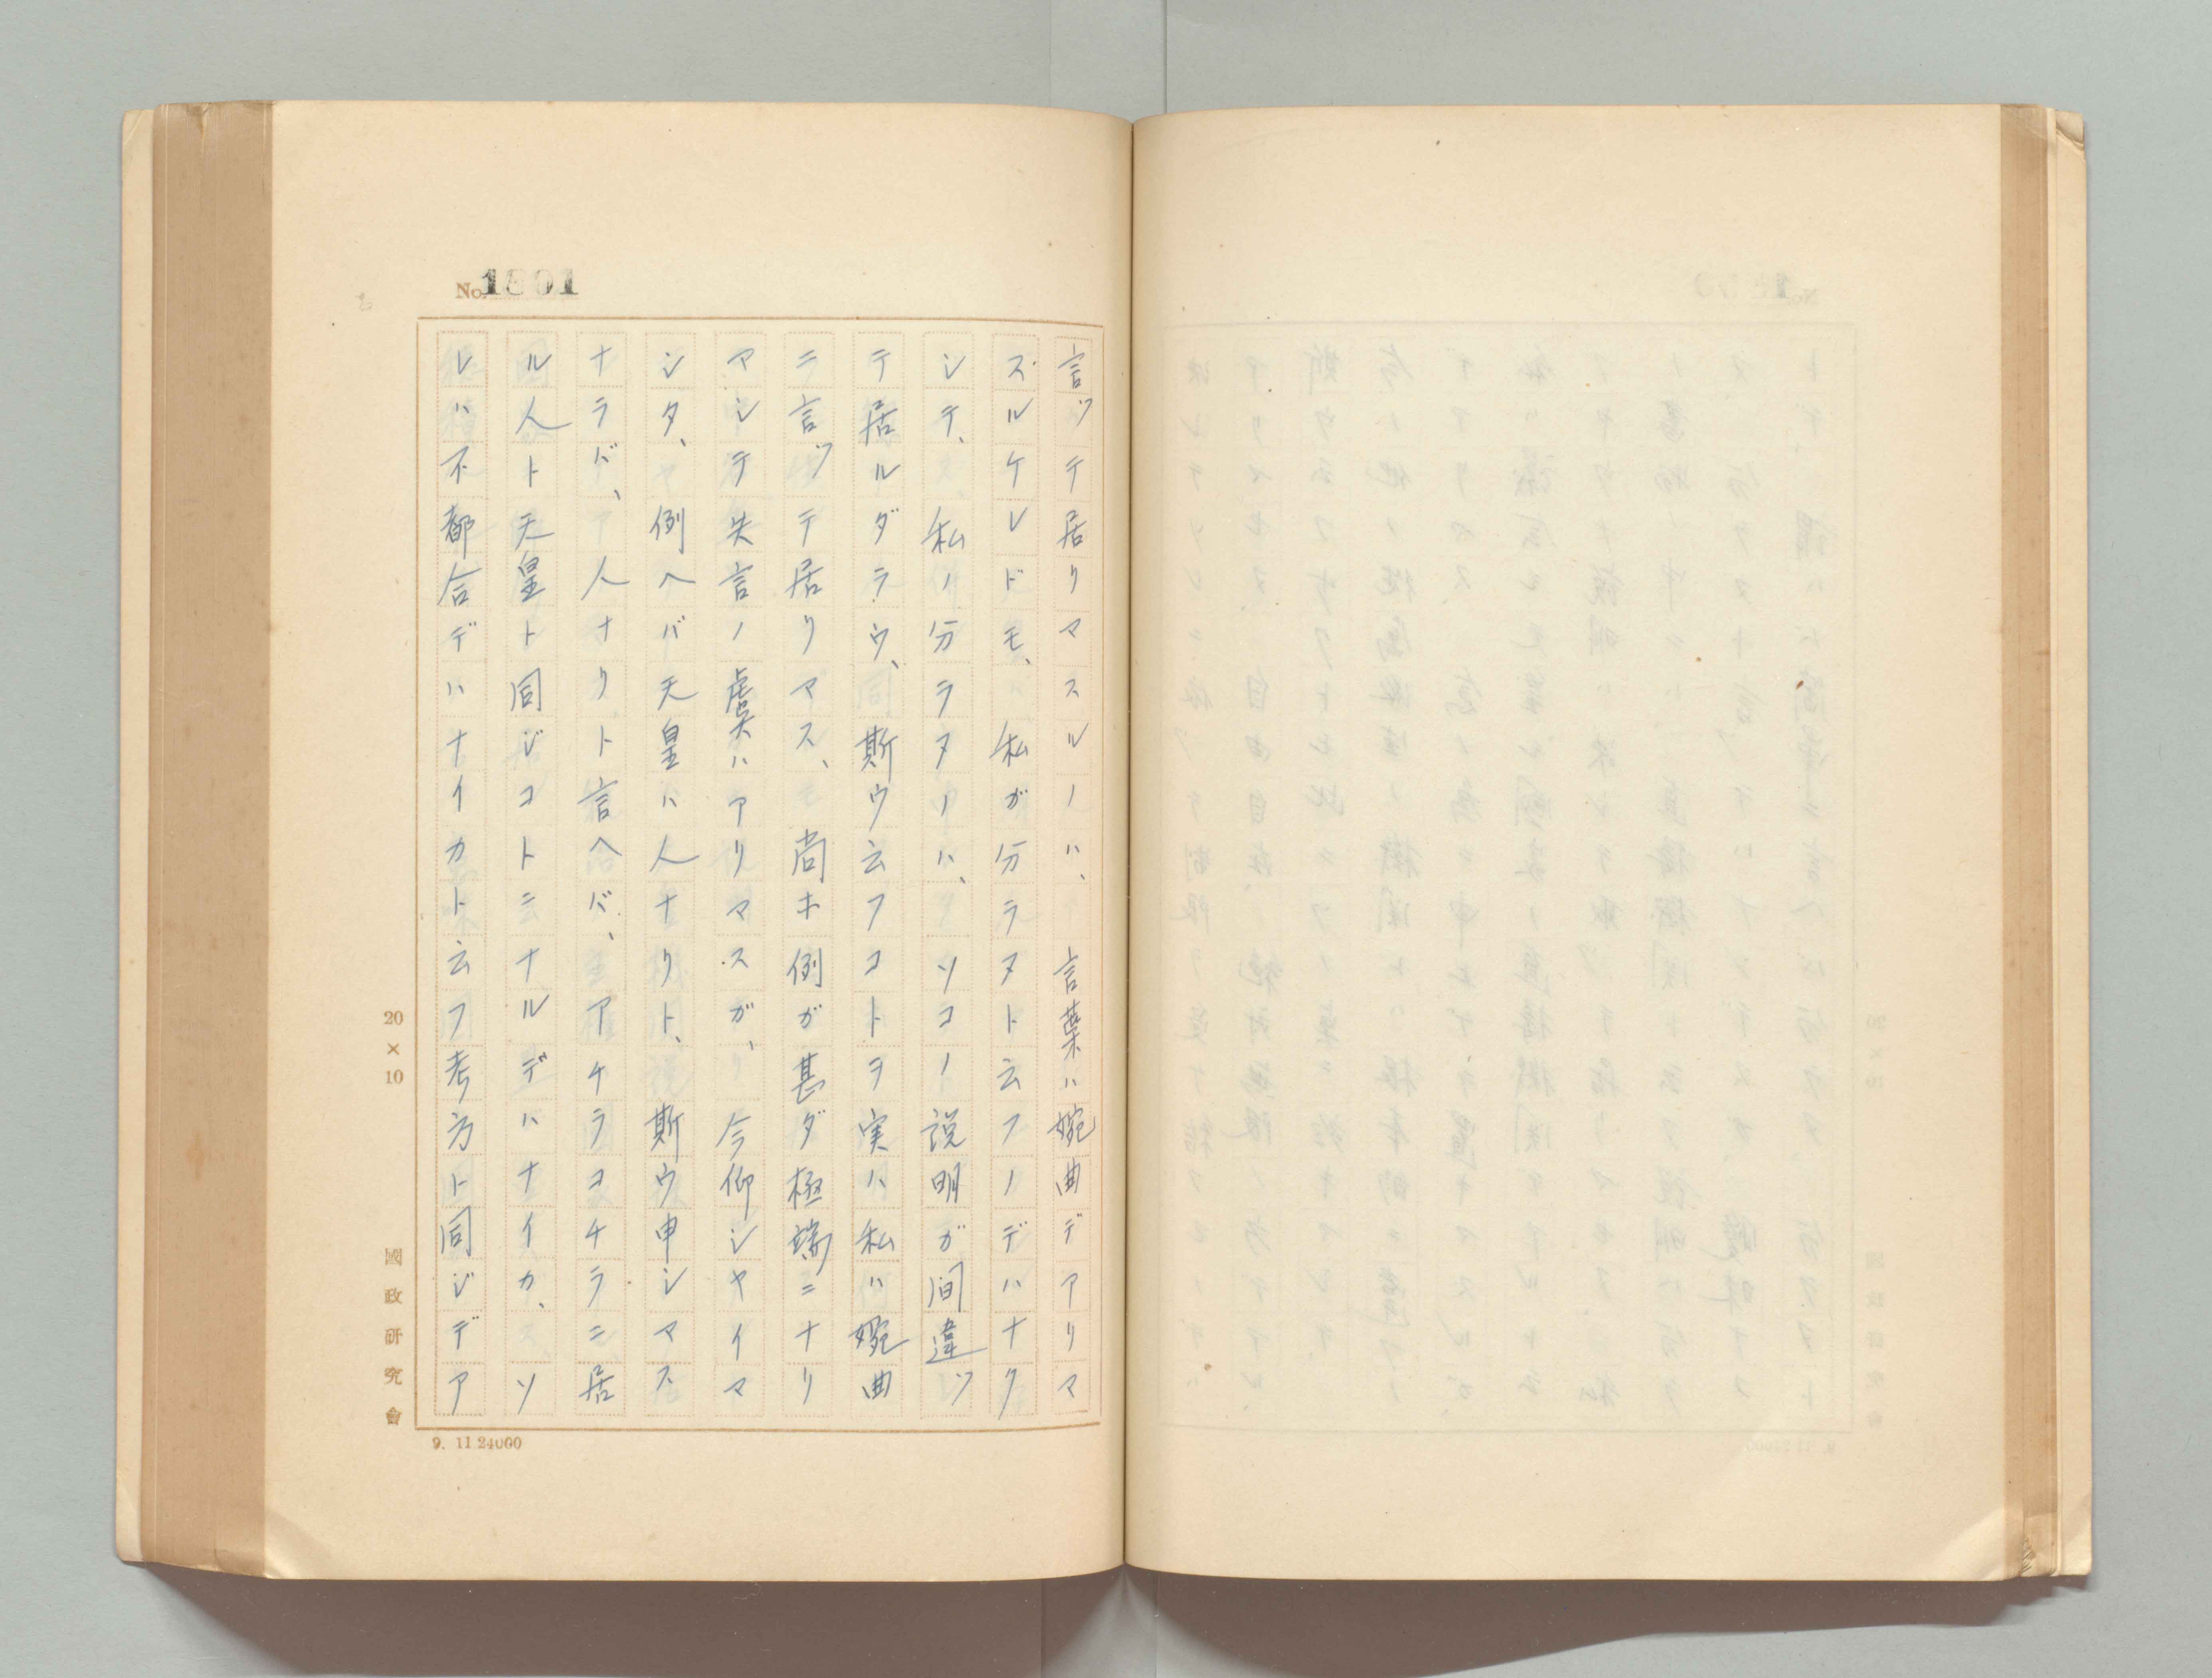 No. 1801
言ッテ居リマスルノハ、言葉ハ婉曲デアリマ
スルケレドモ、私ガ分ラヌト云フノデハナク
シテ、私ノ分ラヌノハ、ソコノ説明ガ間違ッ
テ居ルダラウ、斯ウ云フコトヲ実ハ私ハ婉曲
ニ言ッテ居リマス、尚ホ例ガ甚ダ極端ニナリ
マシテ失言ノ虞ハアリマスガ、今仰シヤイマ
シタ、例ヘバ天皇ハ人ナリト、斯ウ申シマス
ナラバ、人ナリト言ヘバ、アチラコチラニ居
ル人ト天皇ト同ジコトニナルデハナイカ、ソ
レハ不都合デハナイカト云フ考方ト同ジデア
20×10
國政研究會
9. 11.24000